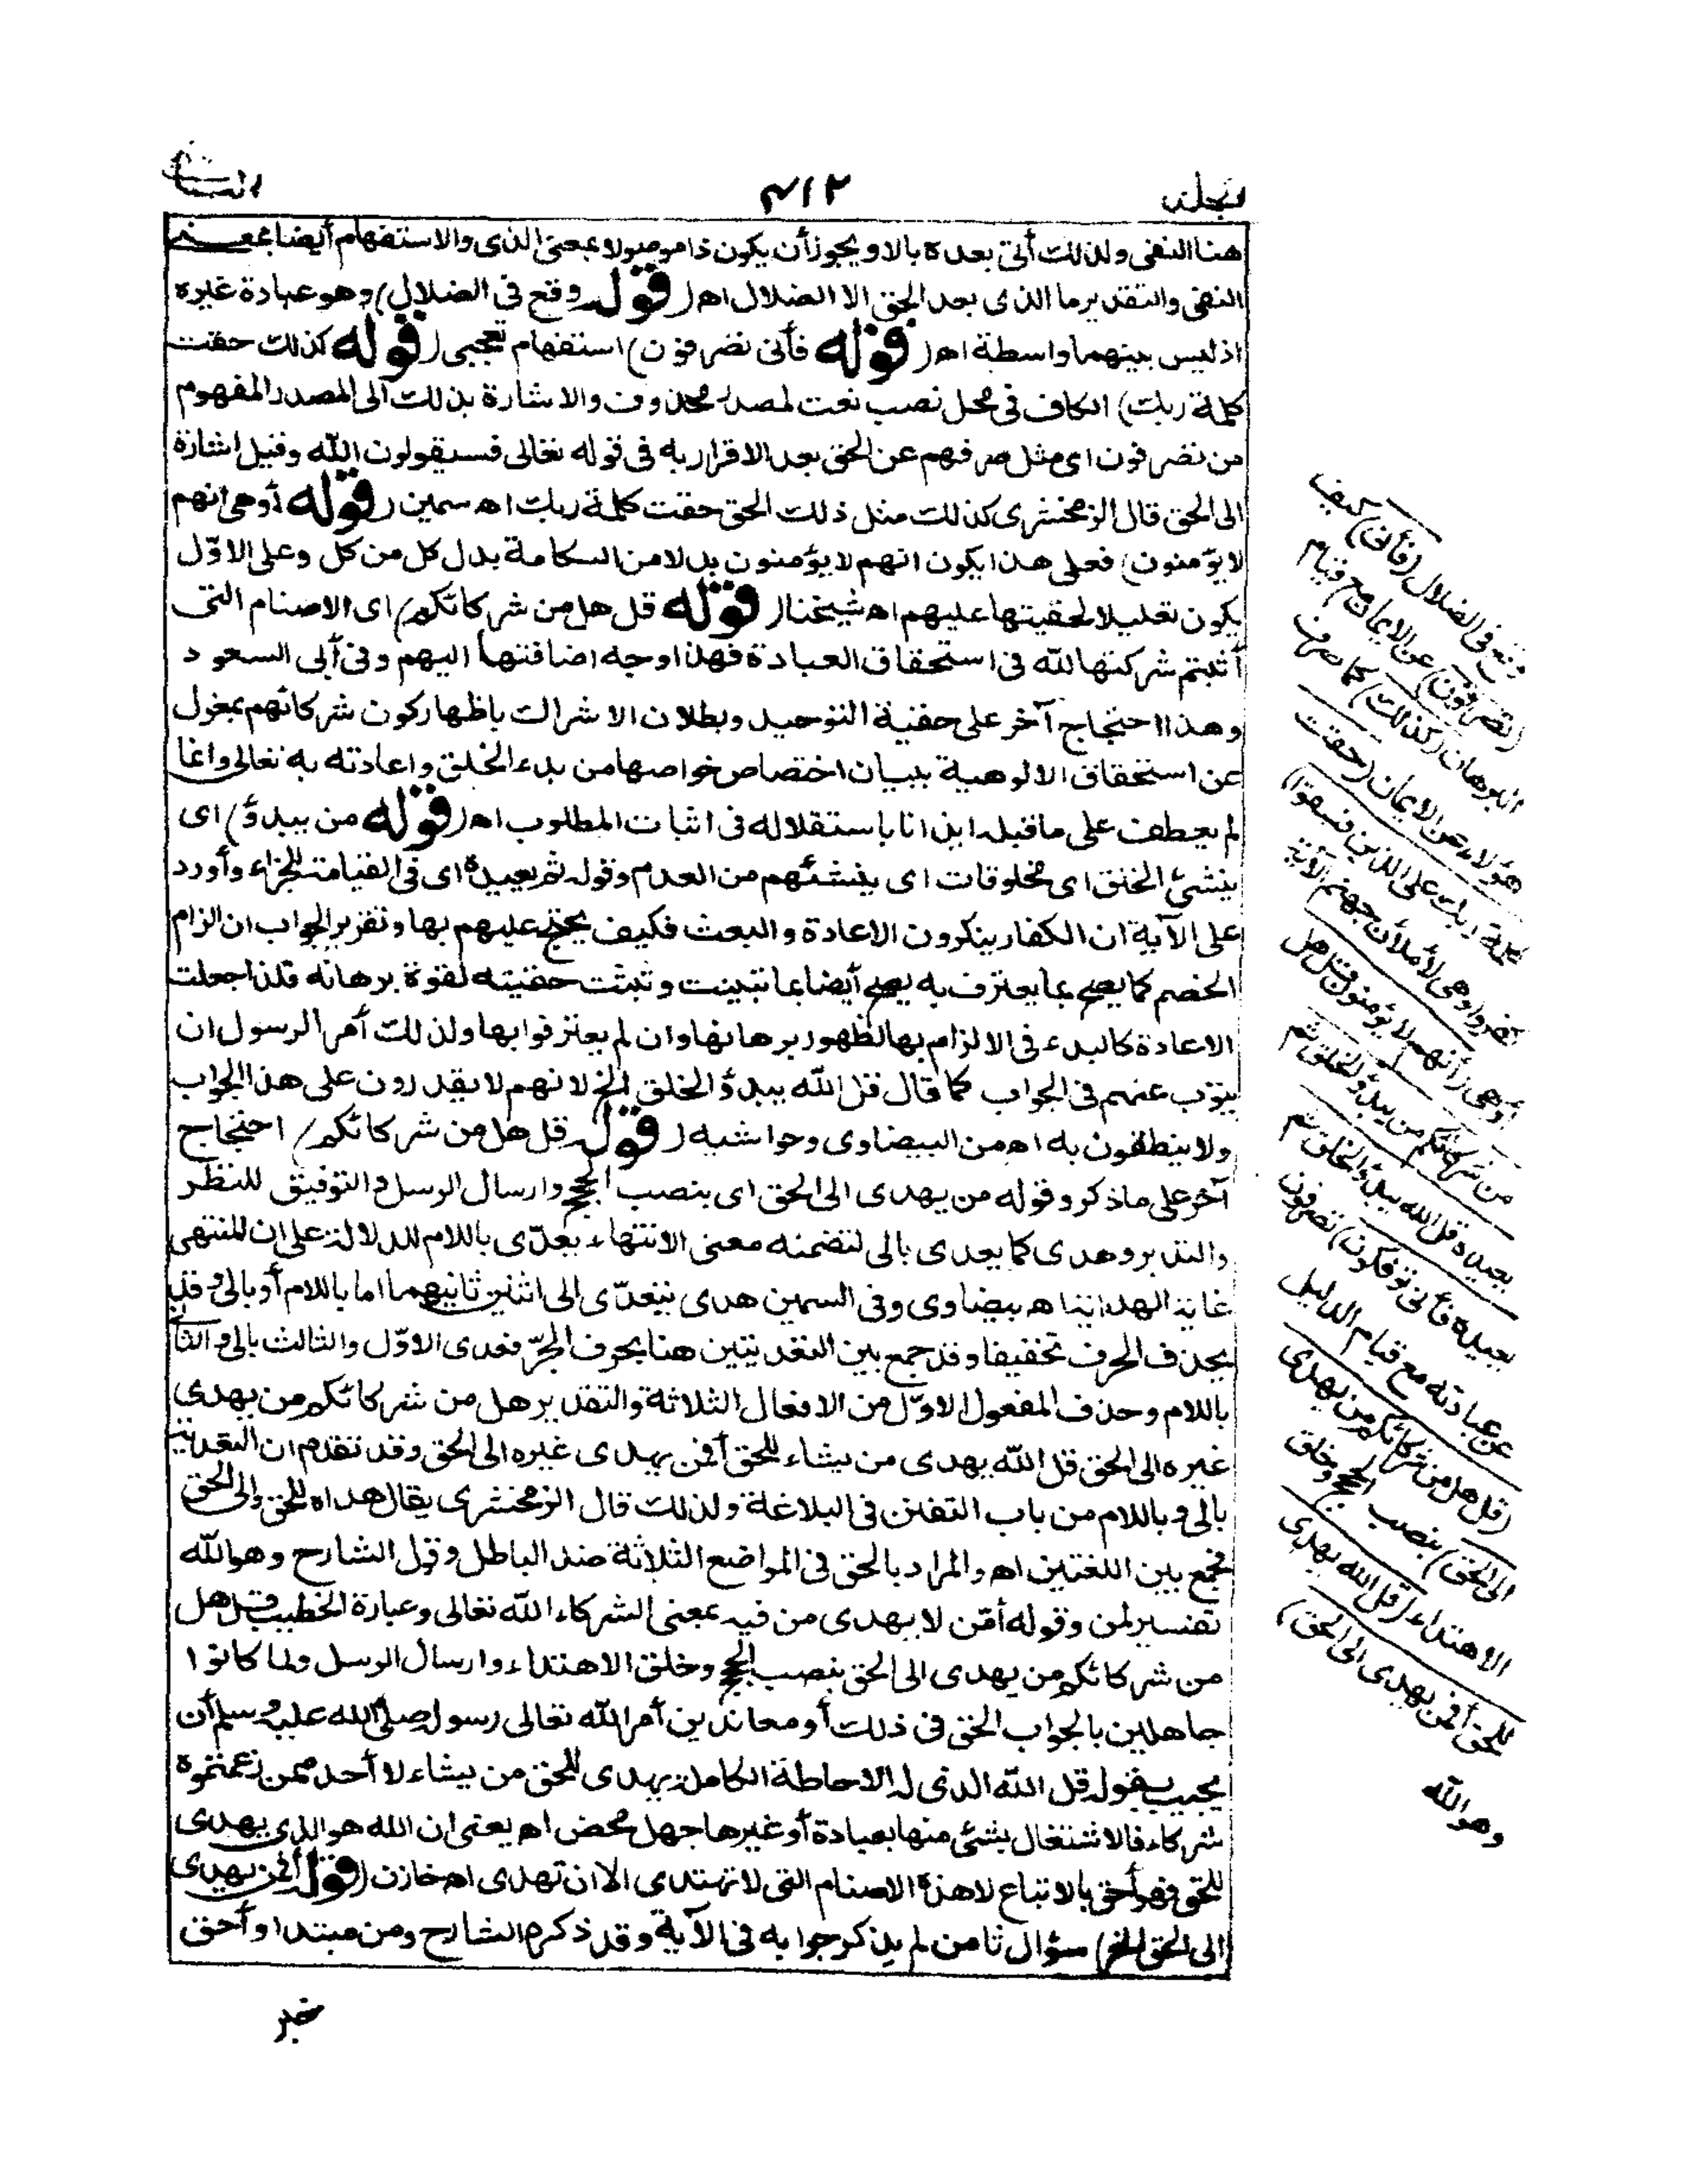 المجلد
٤١٢
الثانى
هنا النفى ولذلك أتى بعده بالا ويجوز أن يكون ذا موصولا بمعنى الذى والاستفهام أيضا بمعنى
النفى والتقدير ما الذى بعد الحق الا الضلال اهـ (قوله وقع فى الضلال) وهو عبادة غيره
اذ ليس بينهما واسطة اهـ (قوله فأنى تصرفون) استفهام تعجبى (قوله كذلك حقت
كلمة ربك) الكاف فى محل نصب نعت لمصدر محذوف والاشارة بذلك الى المصدر المفهوم
من تصرفون اى مثل صرفهم عن الحق بعد الاقرار به فى قوله تعالى فسيقولون الله وقيل اشارة
الى الحق قال الزمخشرى كذلك مثل ذلك الحق حقت كلمة ربك اهـ سمين (قوله أو هى انهم
لا يؤمنون) فعلى هذا يكون انهم لا يؤمنون بدلا من الكلمة بدل كل من كل وعلى الاوّل
يكون تعليلا لحقيتها عليهم اهـ شيخنا (قوله قل هل من شركائكم) اى الاصنام التى
أثبتم شركتها لله فى استحقاق العبادة فهذا وجه اضافتها اليهم وفى أبى السعود
وهذا احتجاج آخر على حقية التوحيد وبطلان الاشراك باظهار كون شركائهم بمعزل
عن استحقاق الالوهية ببيان اختصاص خواصها من بدء الخلق واعادته به تعالى وانما
لم يعطف على ما قبله ايذانا باستقلاله فى اثبات المطلوب اهـ (قوله من يبدؤ) اى
ينشئ الخلق اى مخلوقات اى ينشئهم من العدم وقوله ثم يعيده اى فى القيامة للجزاء وأورد
على الآية ان الكفار ينكرون الاعادة والبعث فكيف يحتج عليهم بها وتقرير الجواب ان الزام
الخصم كما يصح بما يعترف به يصح أيضا بما تبينت وتبثت حقيته لقوة برهانه فلذا جعلت
الاعادة كالبدء فى الالزام بها لظهور برهانها وان لم يعترفوا بها ولذلك أمر الرسول ان
ينوب عنهم فى الجواب كما قال قل الله يبدؤ الخلق الخ لانهم لا يقدرون على هذا الجواب
ولا ينطقون به اهـ من البيضاوى وحواشيه (قوله قل هل من شركائكم) احتجاج
آخر على ما ذكر وقوله من يهدى الى الحق اى بنصب الحجج وارسال الرسل والتوفيق للنظر
والتدبر وهدى كما يعدى بالى لتضمنه معنى الانتهاء يعدّى باللام للدلالة على ان المنتهى
غاية الهداية اهـ بيضاوى وفى السمين هدى يتعدّى الى اثنين ثانيهما اما باللام أو بالى وقد
يحذف الحرف تخفيفا وقد جمع بين التعديتين هنا بحرف الجرّ فعدى الاوّل والثالث بالى والثانى
باللام وحذف المفعول الاوّل من الافعال الثلاثة والتقدير هل من شركائكم من يهدى
غيره الى الحق قل الله يهدى من يشاء للحق أفمن يهدى غيره الى الحق وقد تقدم ان التعدية
بالى وباللام من باب التفنن فى البلاغة ولذلك قال الزمخشرى يقال هداه للحق والى الحق
فجمع بين اللغتين اهـ والمراد بالحق فى المواضع الثلاثة ضد الباطل وقول الشارح وهو الله
تفسير لمن وقوله أمّن لا يهدى من فيه بمعنى الشركاء الله تعالى وعبارة الخطيب قل هل
من شركائكم من يهدى الى الحق بنصب الحجج وخلق الاهتداء وارسال الرسل ولما كانوا
جاهلين بالجواب الحق فى ذلك أو معاندين أمر الله تعالى رسوله صلى الله عليه وسلم أن
يجيب بقوله قل الله الذى له الاحاطة الكاملة يهدى للحق من يشاء لا أحد ممن زعمتموه
شركاء فالاشتغال بشئ منها بعبادة أو غيرها جهل محض اهـ يعنى ان الله هو الذى يهدى
للحق فهو أحق بالاتباع لا هذه الاصنام التى لا تهتدى الا ان تهدى اهـ خازن (قوله أفمن يهدى
الى الحق الخ) سؤال ثامن لم يذكر جوابه فى الآية وقد ذكره الشارح ومن مبتدا وأحق
خبر
وقع فى الضلال (فأنى) كيف
(تصرفون) عن الايمان مع قيام
البرهان (كذلك) كما صرف
هؤلاء عن الايمان (حقت
كلمة ربك على الذين فسقوا)
كفروا وهى لأملأن جهنم الآية
أو هى (أنهم لا يؤمنون قل هل
من شركائكم من يبدؤ الخلق ثم
يعيده قل الله يبدؤ الخلق ثم
يعيده فأنى تؤفكون) تصرفون
عن عبادته مع قيام الدليل
(قل هل من شركائكم من يهدى
الى الحق) بنصب الحجج وخلق
الاهتداء (قل الله يهدى
للحق أفمن يهدى الى الحق)
وهو الله